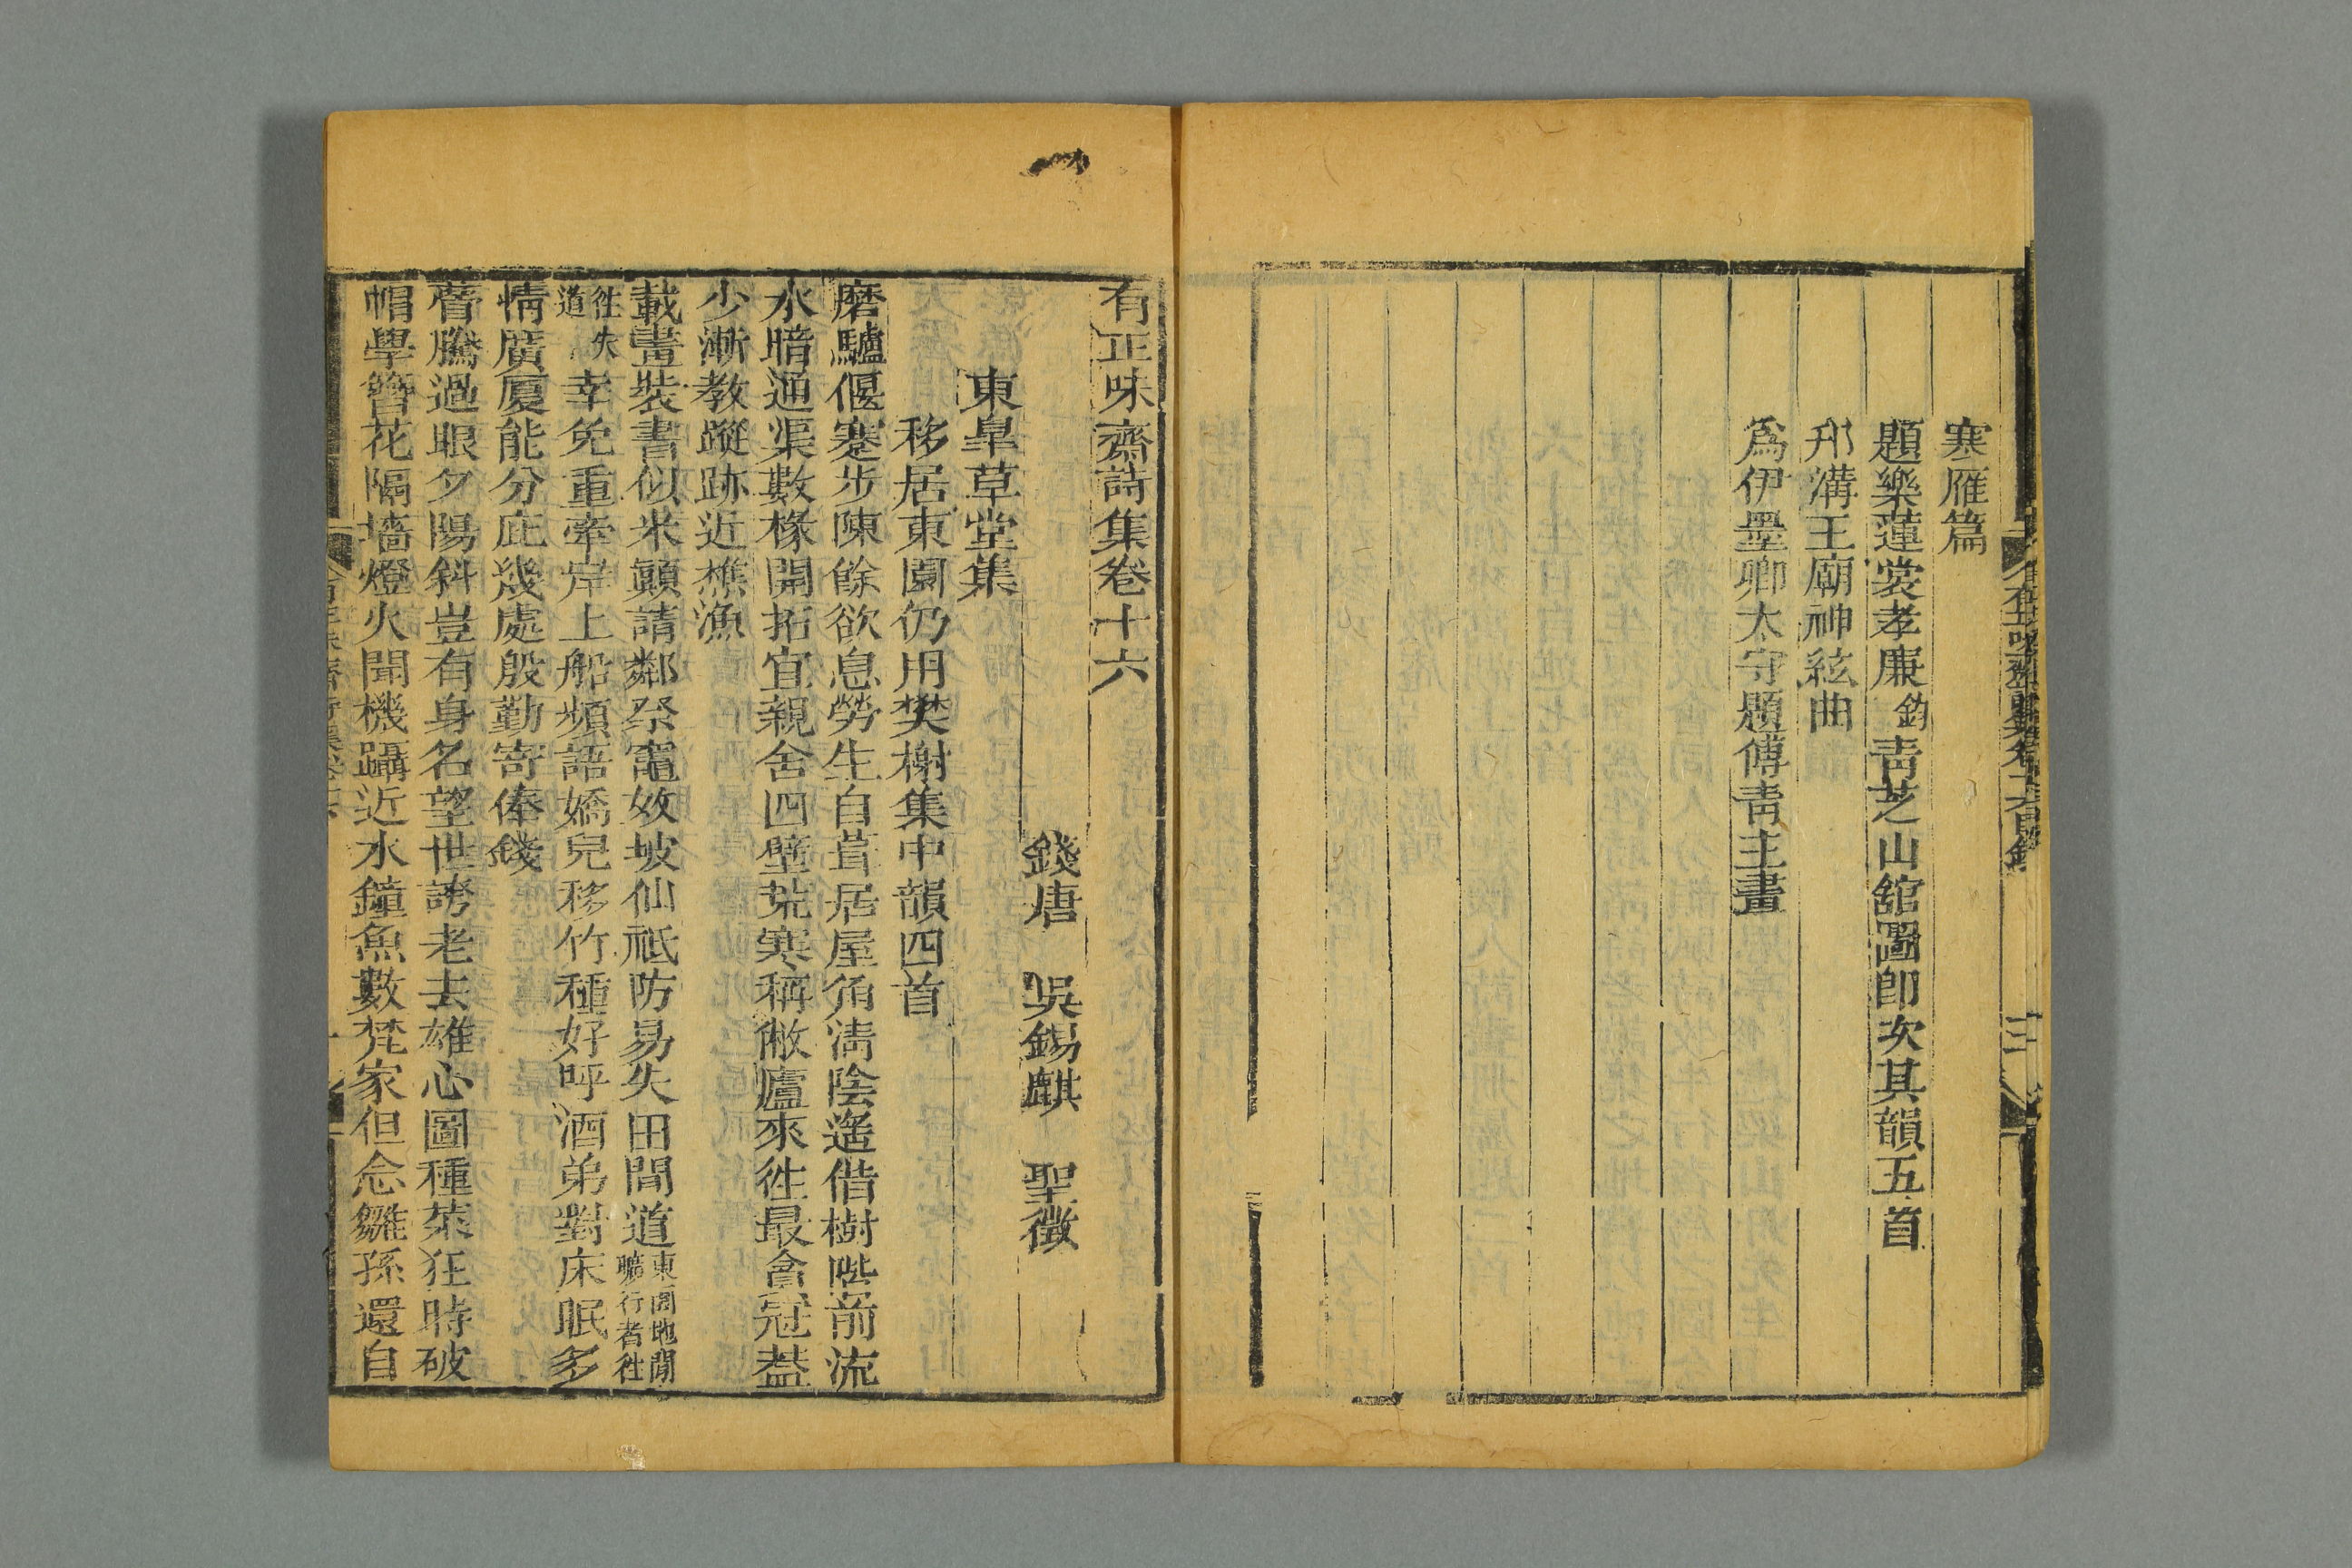 寒雁篇
題樂蓮裳孝廉鈞青芝山舘圖即次其韻五首
邗溝王廟神絃曲
為伊墨卿太守題傅青主畫
有正味齋詩集卷十六
錢唐 吳錫麒 聖徵
東臯草堂集
移居東園仍用樊榭集中韻四首
磨驢偃蹇步陳餘欲息勞生自葺居屋角淸陰遙借樹階前流
水暗通渠數椽開拓宜親舍四壁荒寒稱敝廬來徃最貪冠蓋
少漸教蹤跡近樵漁
載畫裝書似米顛請鄰祭竈效坡仙祗防易失田間道東園地閒曠行者徃
徃失道幸免重牽岸上船頻語嬌兒移竹種好呼酒弟對床眠多
情廣廈能分庇幾處殷勤寄俸錢
瞢騰過眼夕陽斜豈有身名望世誇老去雄心圖種菜狂時破
帽學簪花隔墻燈火聞機躡近水鐘魚數梵家但念雛孫還自